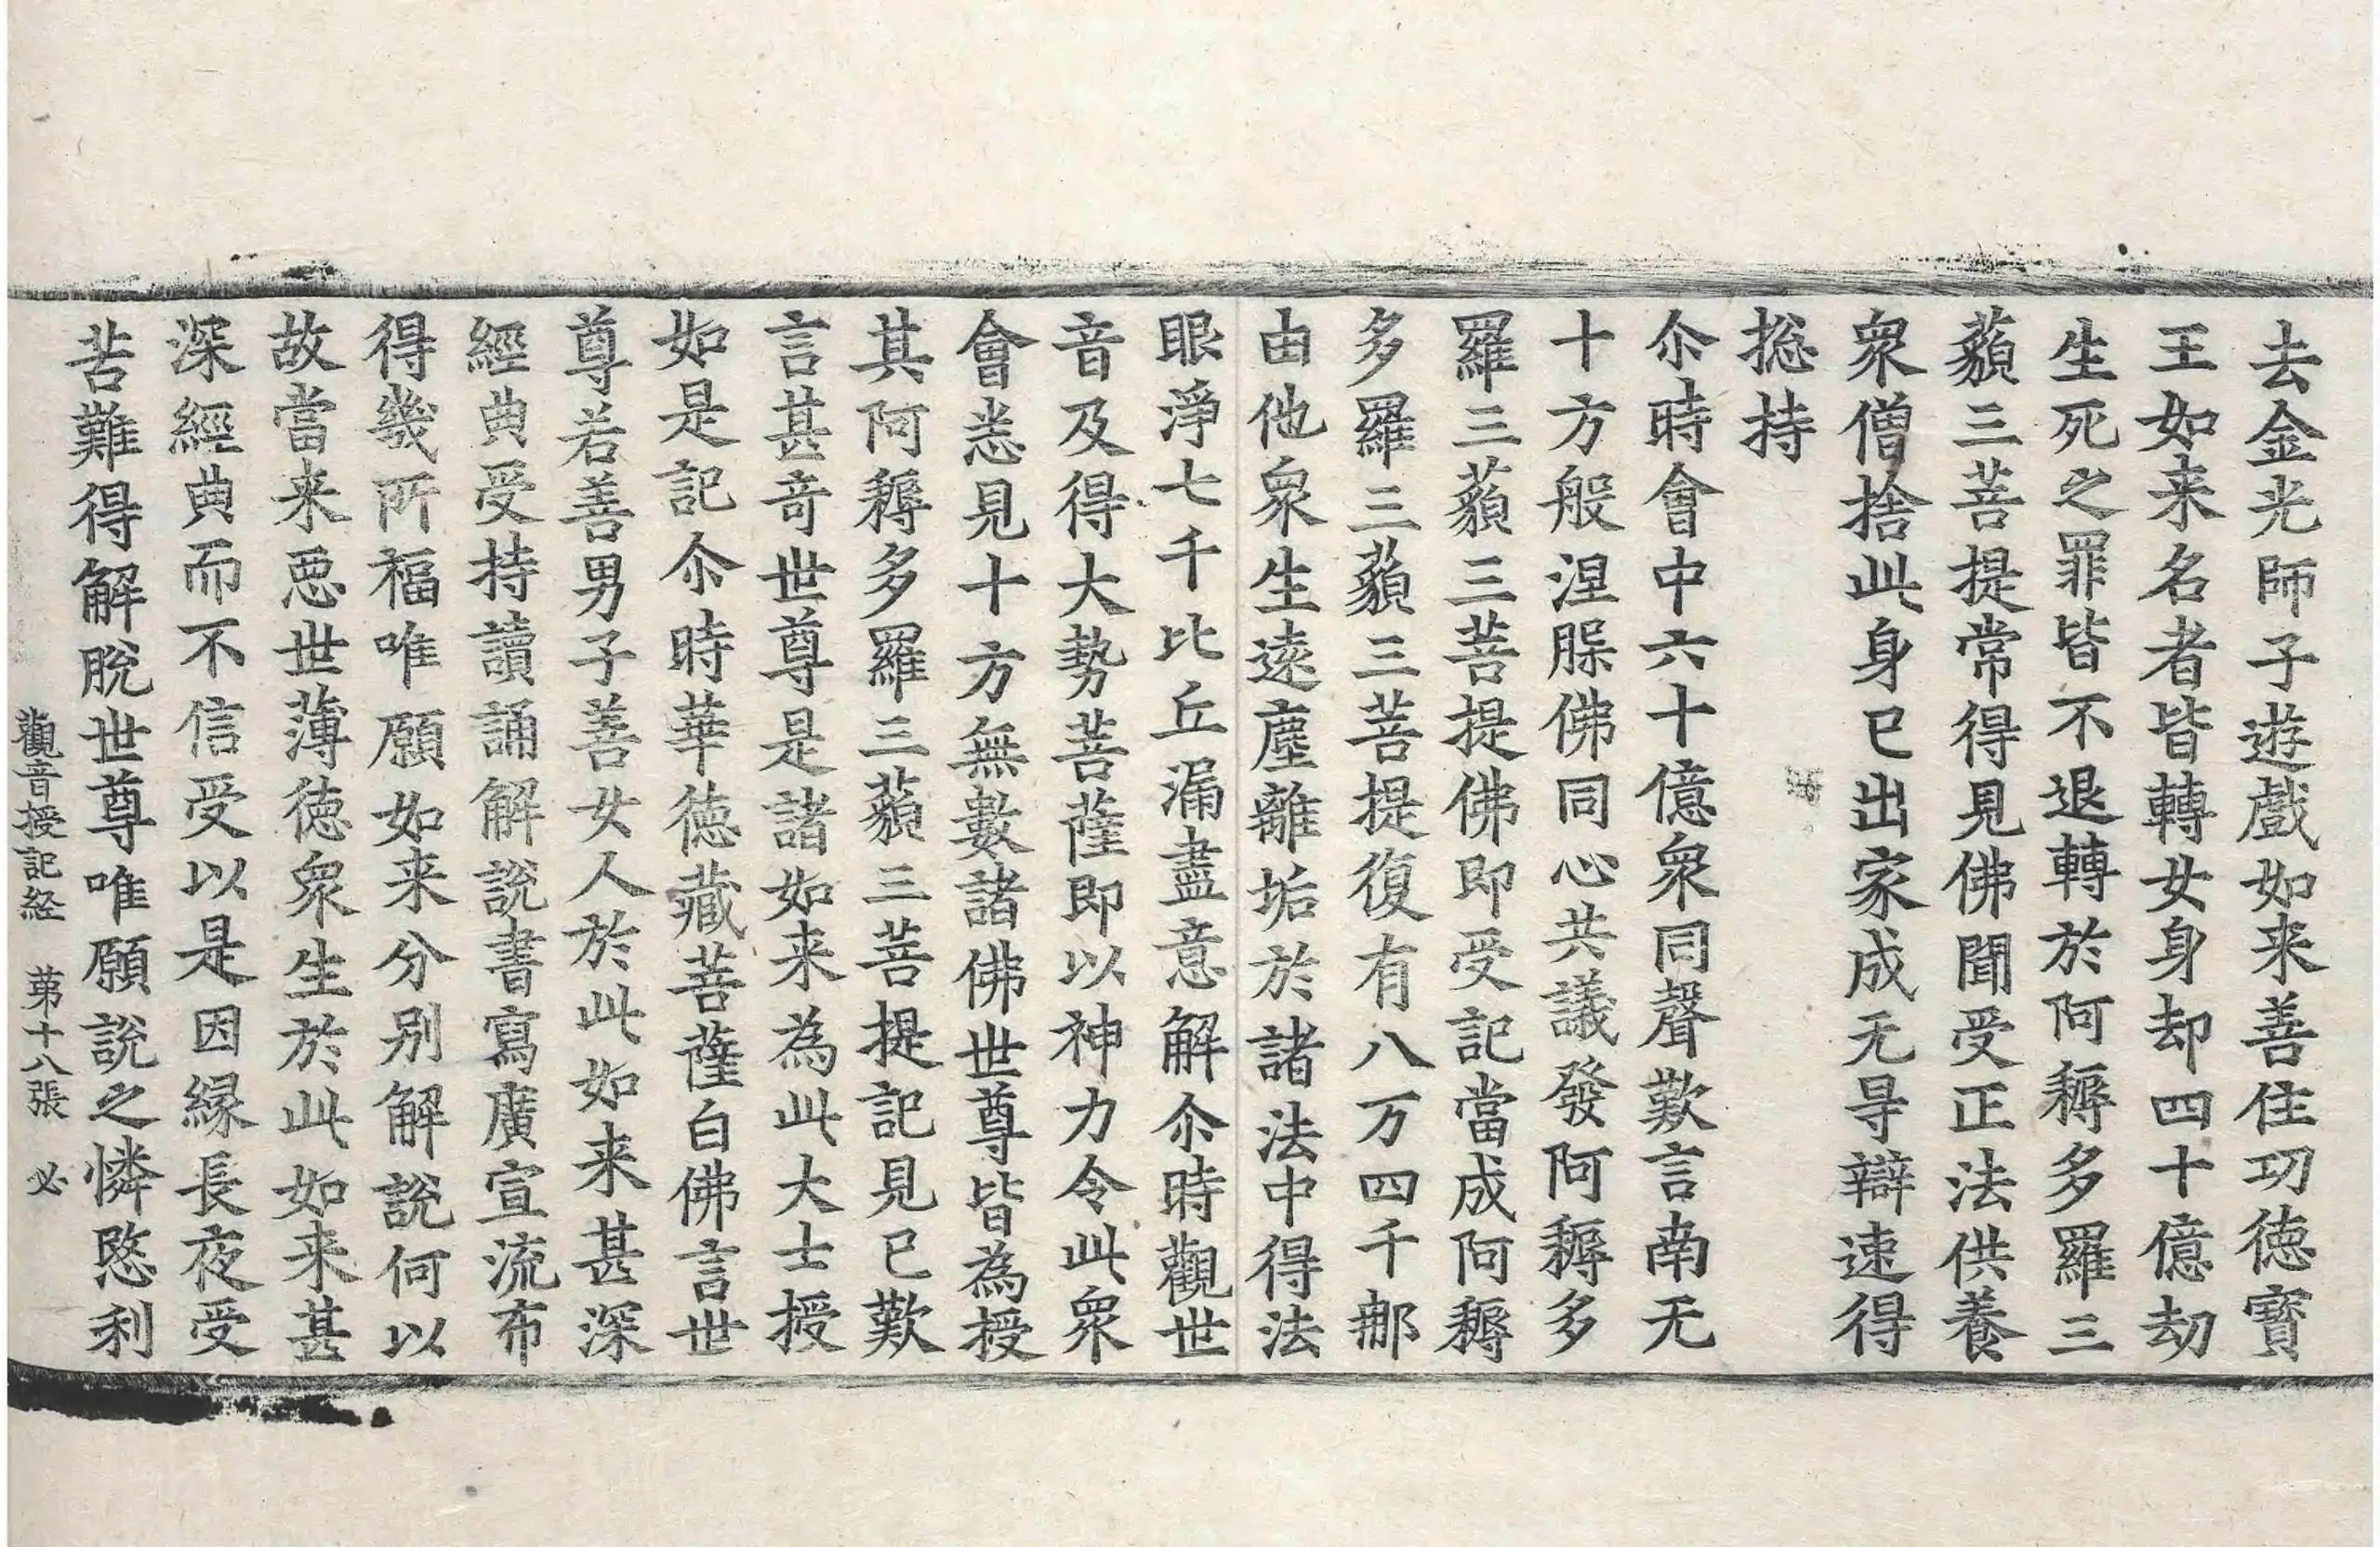 去金光師子遊戲如来善住功徳寳
王如来名者皆轉女身却四十億劫
生死之罪皆不退轉於阿耨多羅三
藐三菩提常得見佛聞受正法供養
衆僧捨此身已出家成无㝵辯速得
摠持
尒時會中六十億衆同聲歎言南无
十方般涅槃佛同心共議發阿耨多
羅三藐三菩提佛即受記當成阿耨
多羅三藐三菩提復有八万四千那
由他衆生遠塵離垢於諸法中得法
眼淨七千比丘漏盡意解尒時觀世
音及得大勢菩薩即以神力令此衆
會悉見十方無數諸佛世尊皆為授
其阿耨多羅三藐三菩提記見已歎
言甚奇世尊是諸如来為此大士授
如是記尒時華徳藏菩薩白佛言世
尊若善男子善女人於此如来甚深
經典受持讀誦解說書寫廣宣流布
得幾所福唯願如来分別解說何以
故當来惡世薄徳衆生於此如来甚
深經典而不信受以是因緣長夜受
苦難得解脫世尊唯願說之憐愍利
觀音授記経　第十八張　必